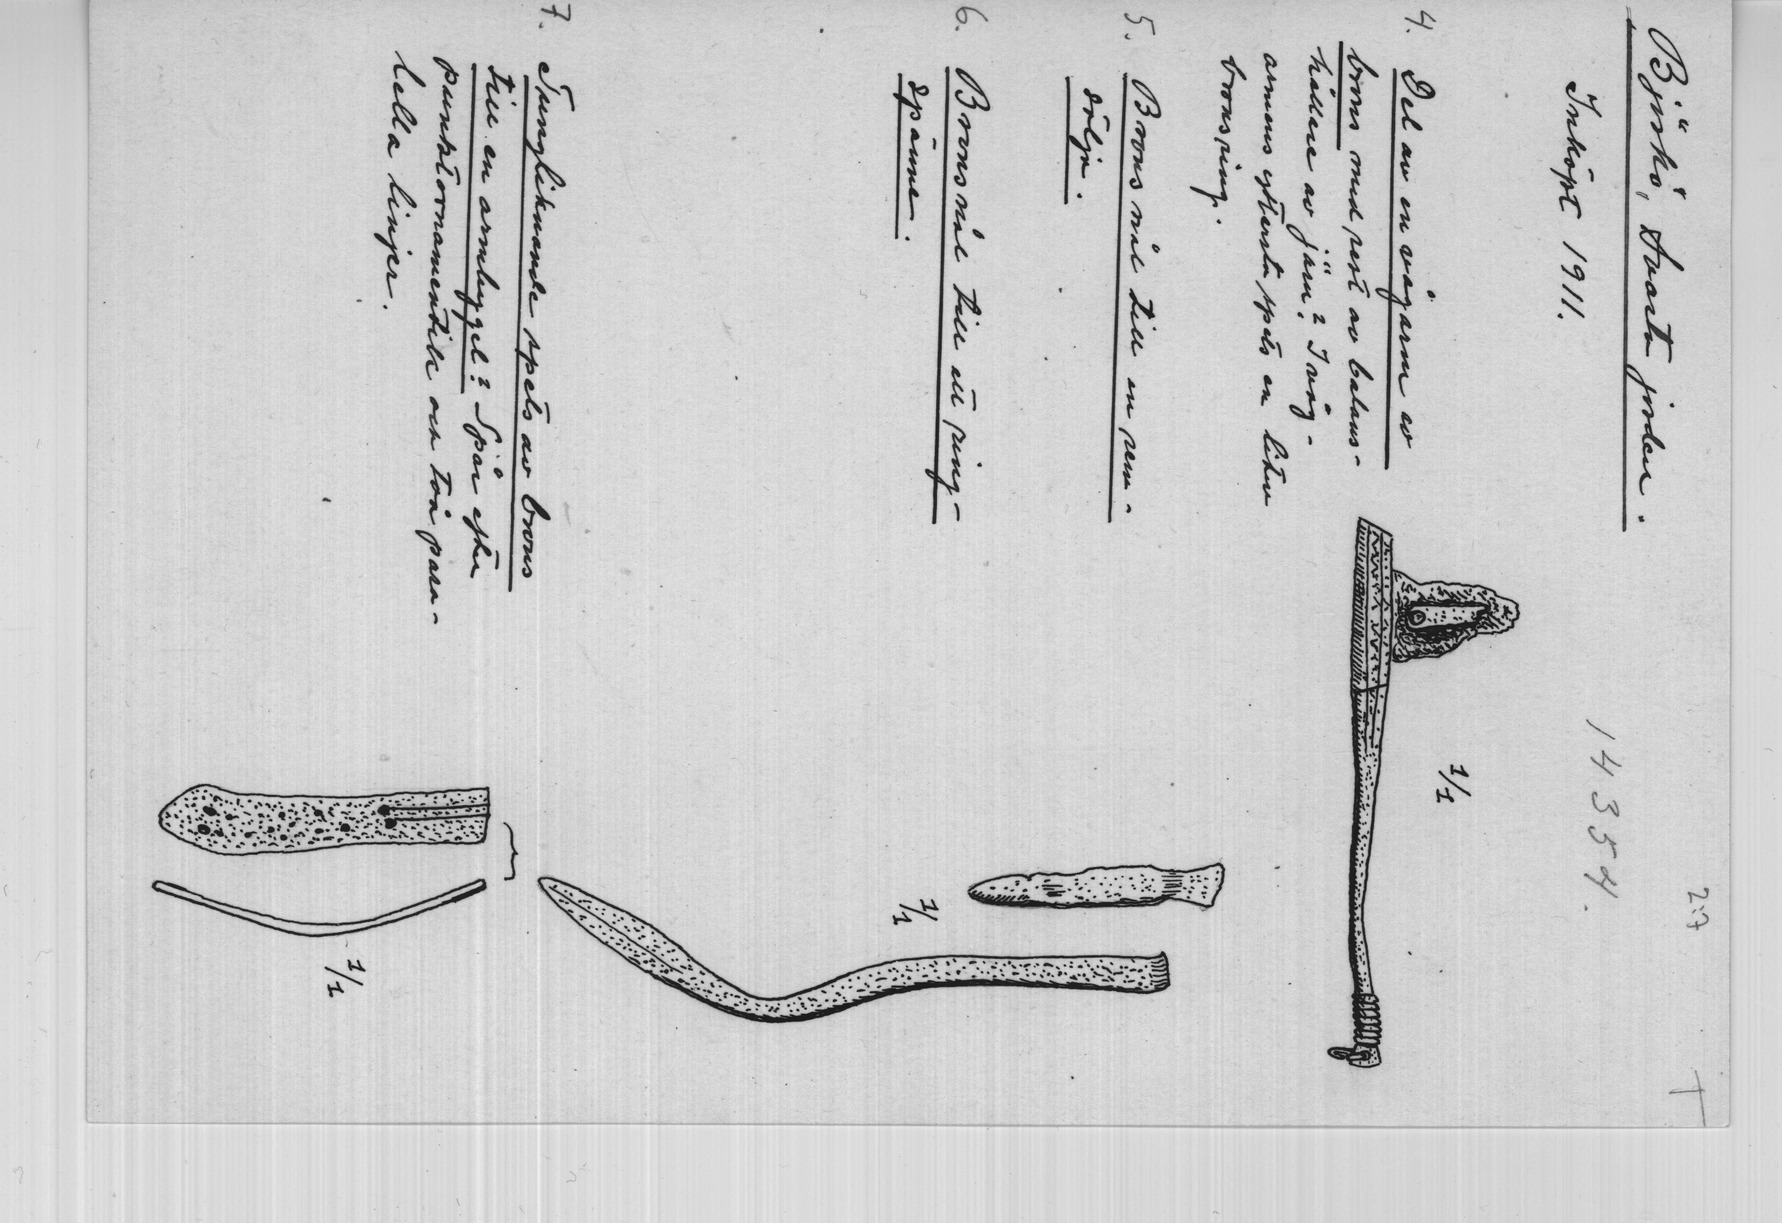 2:7
14354.
Björkö, Svarta jorden.
Inköpt 1911.
4. Del av en vågarm av
brons med rest av balans-
hållare av järn? I våg-
armens yttersta spets en liten
bronsring.
1/1
5. Bronsnål till en rem-
sölja.
6. Bronsnål till ett ring-
spänne.
1/1
7. Tungliknande spets av brons
till en armbygel? Spår efter
punktornamentik och två para-
lella linjer.
1/1